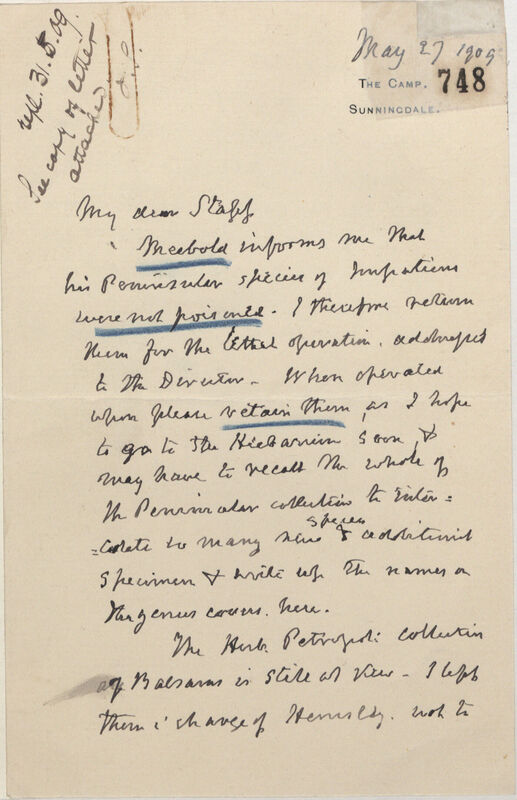 repl. 31.5.09.
See copy of letter
attached
May 27 1909
THE CAMP, 748
SUNNINGDALE.
My dear Stapf
Meebold informs me that
his Peninsular species of Impatiens
were not poisoned. I therefore return
them for the lethal operation, addressed
to the Director - When operated
upon please retain them, as I hope
to go to the Herbarium soon, &
may have to recall the whole of
the Peninsular collection to inter=
=calate so many new species & additional
specimens & write up the names on
the genus covers here.
The Herb. Petropol: collection
of Balsams is still at Kew - I left
them i charge of Hemsley. not to